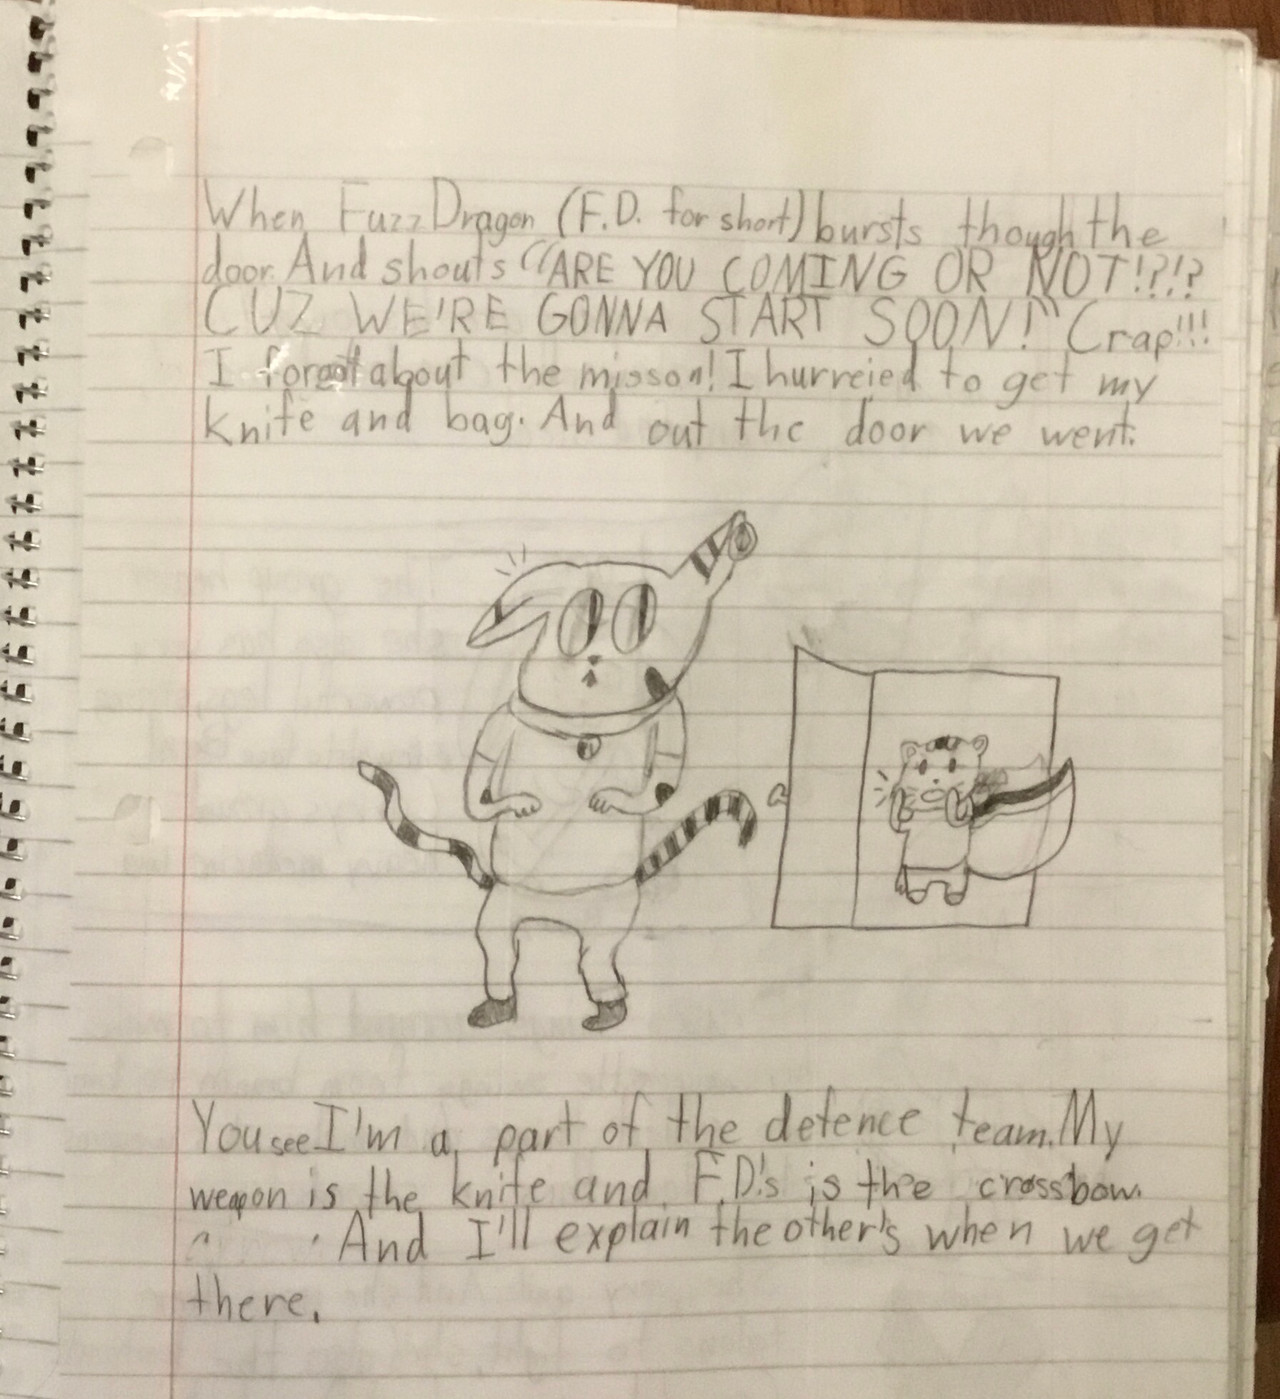 When FuzzDragon (F.D. for short) bursts though the
door. And shouts "ARE YOU COMING OR NOT!?!?
CUZ WE'RE GONNA START SOON!" Crap!!!
I forgot about the misson! I hurreied to get my
knife and bag. And out the door we went.
You see I'm a part of the defence team. My
weapon is the knife and F.D.'s is the crossbow.
And I'll explain the other's when we get
there.